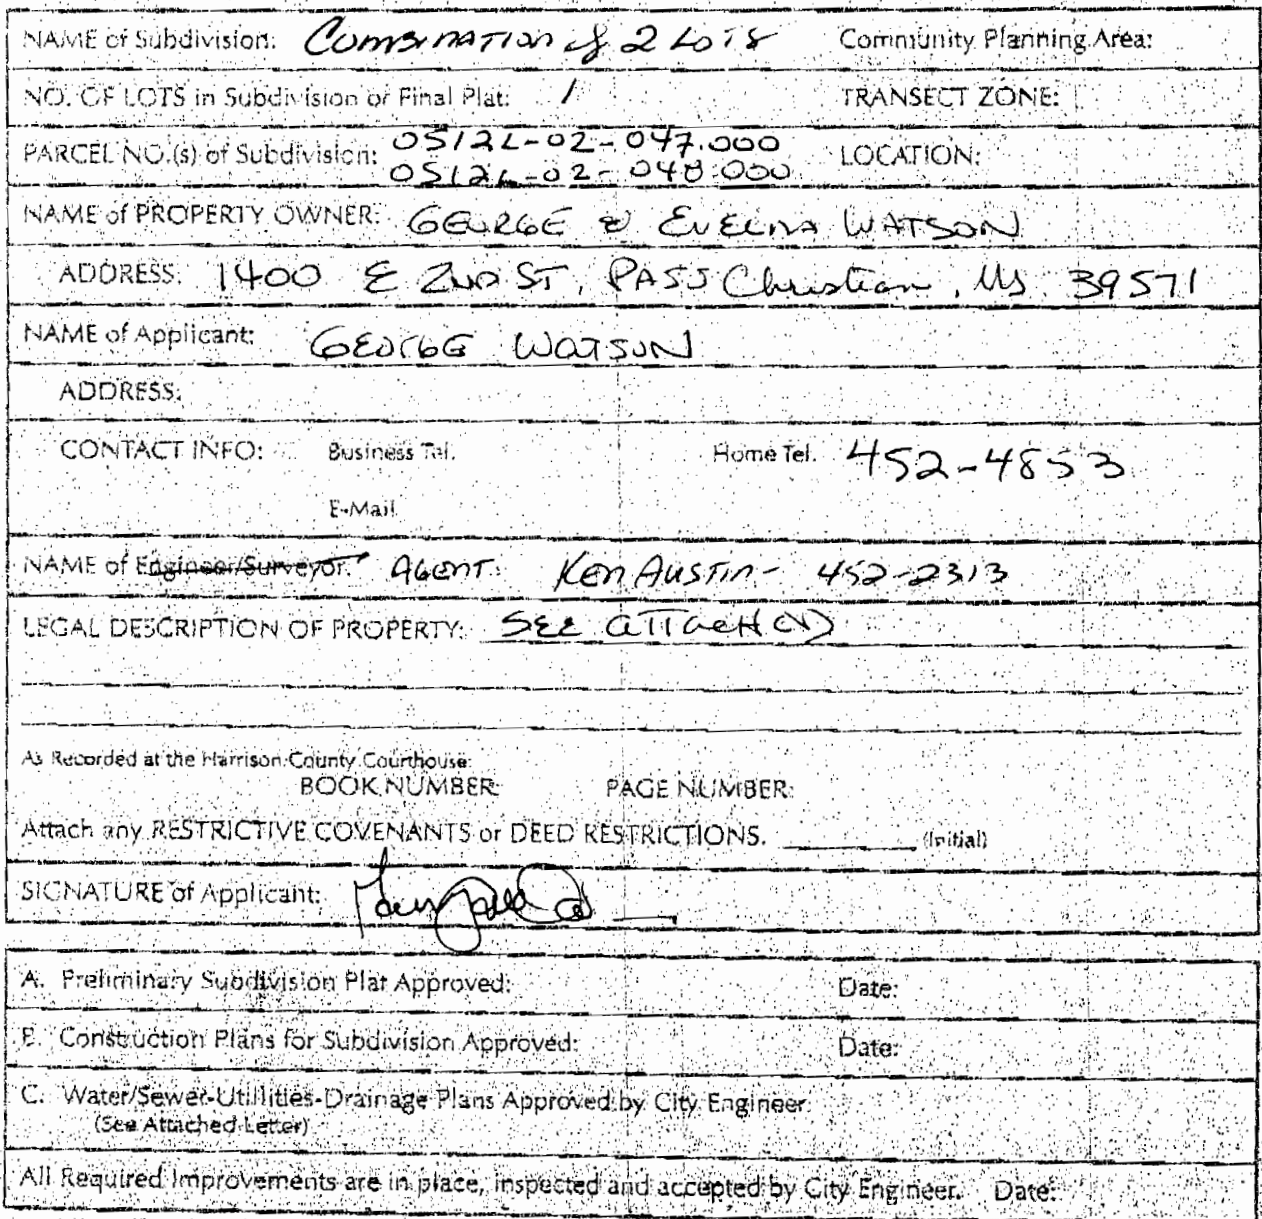 NAME of Subdivision: Combination of 2 Lots Community Planning Area:
NO. OF LOTS in Subdivision or Final Plat: 1 TRANSECT ZONE:
PARCEL NO.(s) of Subdivision: 0512L-02-047.000 LOCATION:
0512L-02-048.000
NAME of PROPERTY OWNER: GEORGE & EVELINA WATSON
ADDRESS: 1400 E 2ND ST, PASS Christian, Ms 39571
NAME of Applicant: GEORGE WATSON
ADDRESS:
CONTACT INFO: Business Tel. Home Tel. 452-4853
E-Mail
NAME of Engineer/Surveyor: AGENT: KEN AUSTIN - 452-2313
LEGAL DESCRIPTION OF PROPERTY: SEE ATTACHED
As Recorded at the Harrison County Courthouse:
BOOK NUMBER: PAGE NUMBER:
Attach any RESTRICTIVE COVENANTS or DEED RESTRICTIONS. (Initial)
SIGNATURE of Applicant:
A. Preliminary Subdivision Plat Approved: Date:
B. Construction Plans for Subdivision Approved: Date:
C. Water/Sewer-Utilities-Drainage Plans Approved by City Engineer
(See Attached Letter)
All Required Improvements are in place, inspected and accepted by City Engineer. Date: